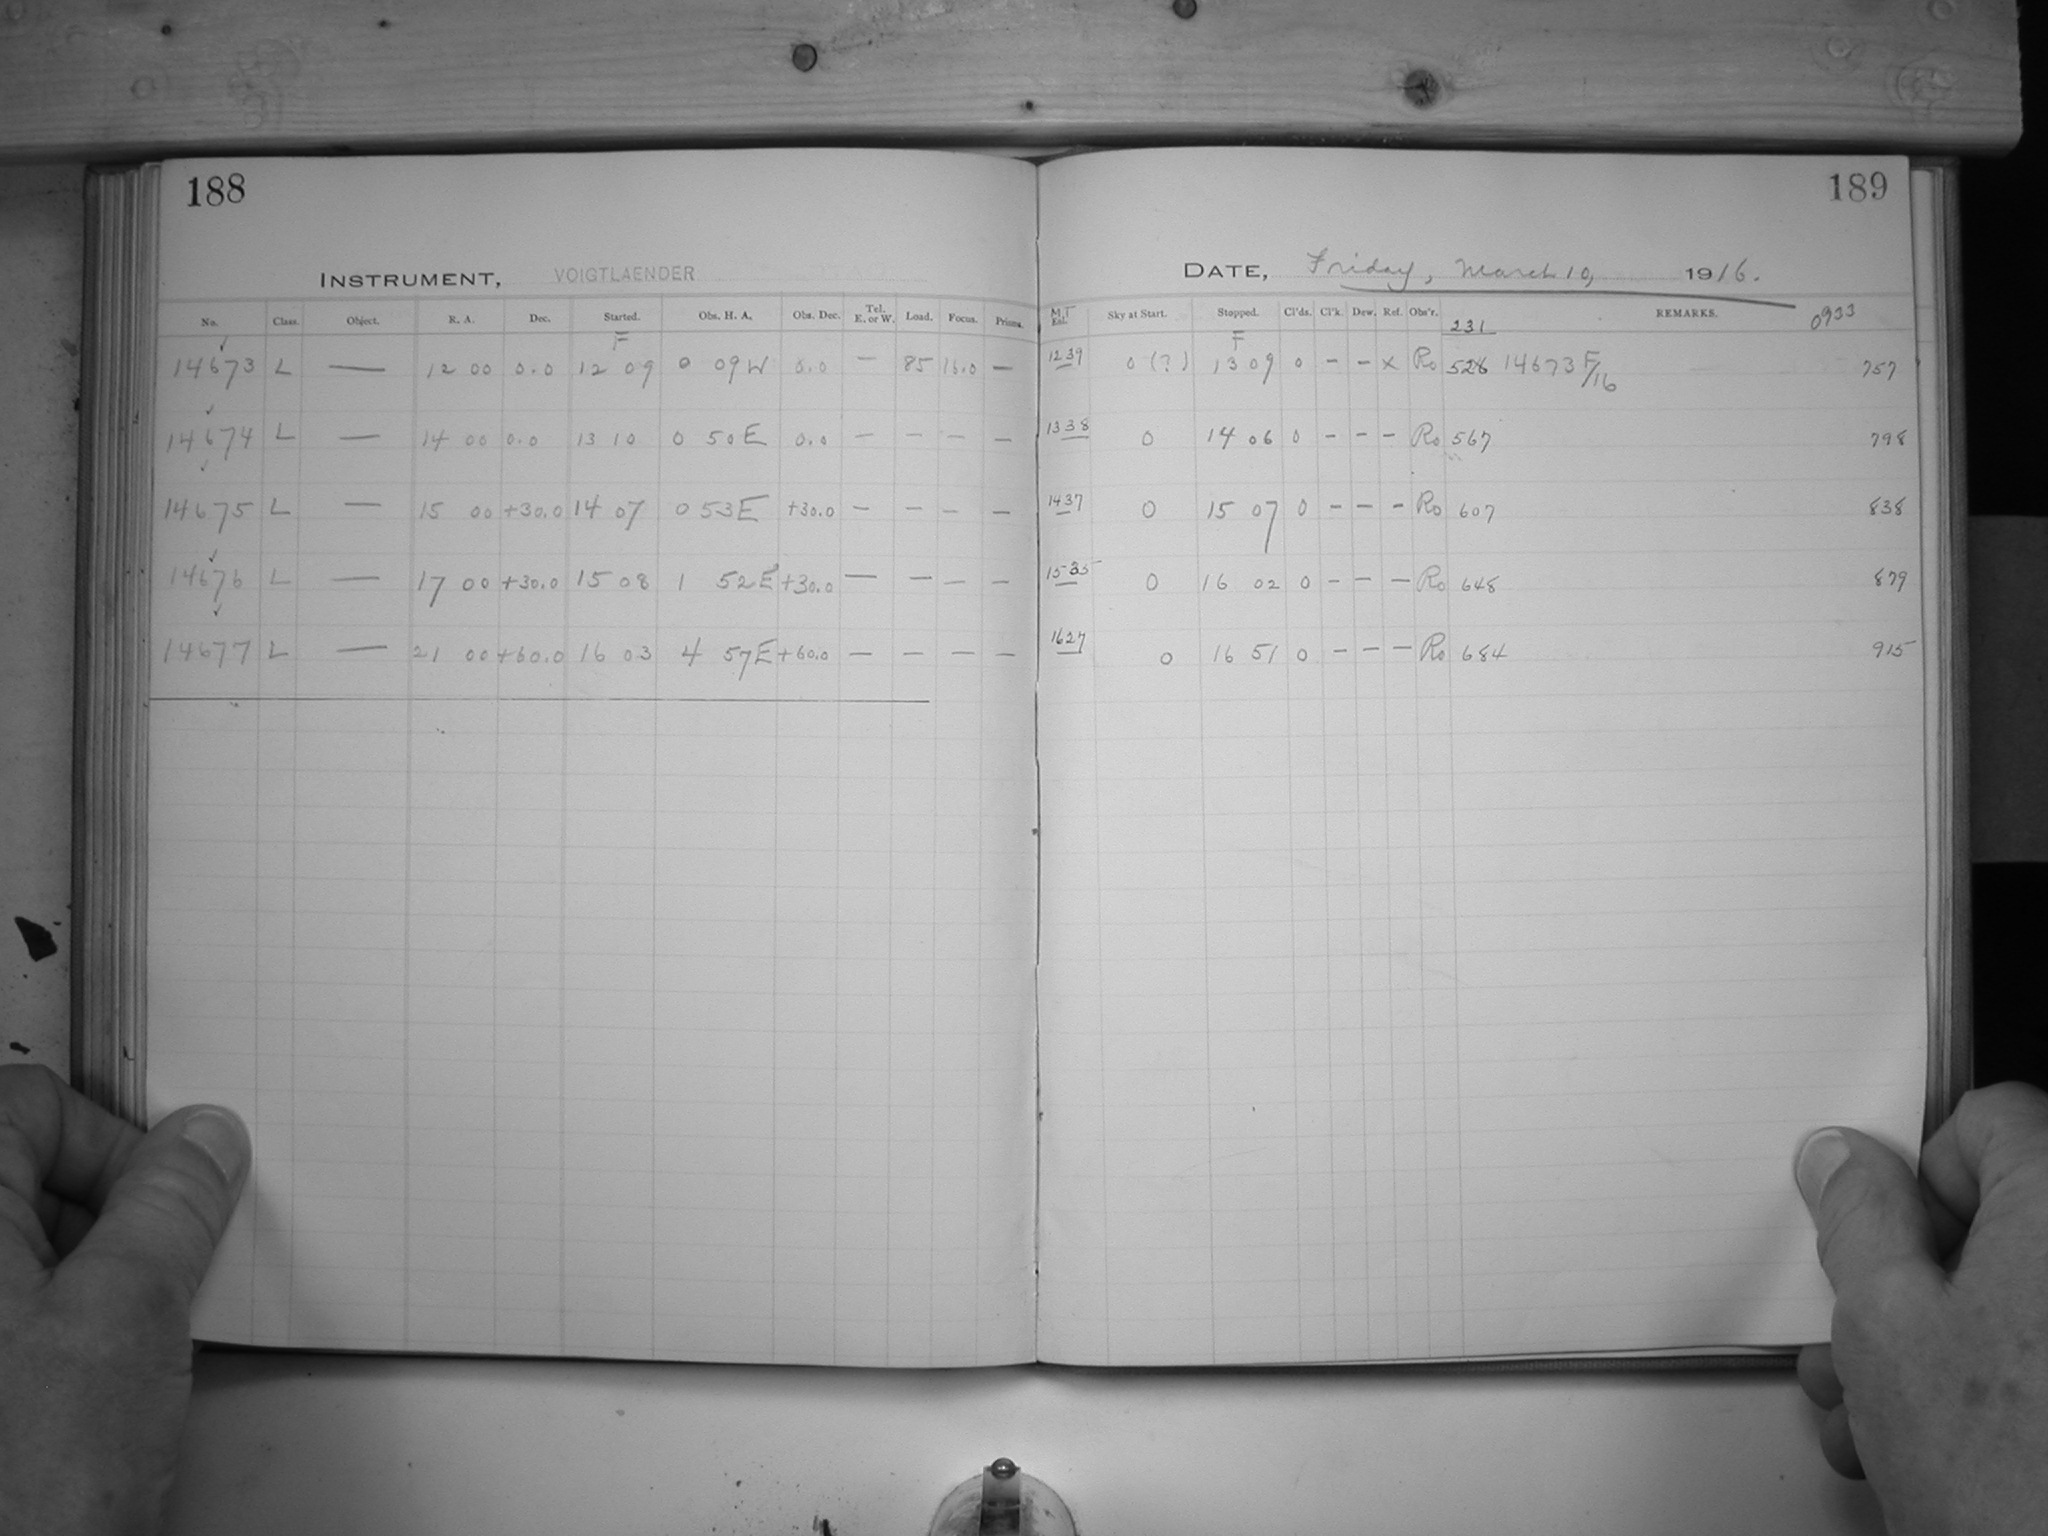 188
INSTRUMENT, VOIGTLAENDER
No. Class. Object. R. A. Dec. Started. Obs. H. A. Obs. Dec. Tel. E. or W. Load. Focus. Prisms.
F
14673 L — 12 00 0.0 12 09 0 09W 0.0 — 85 16.0 —
14674 L — 14 00 0.0 13 10 0 50E 0.0 — — — —
14675 L — 15 00 +30.0 14 07 0 53E +30.0 — — — —
14676 L — 17 00 +30.0 15 08 1 52E +30.0 — — — —
14677 L — 21 00 +60.0 16 03 4 57E +60.0 — — — —
189
DATE, Friday, March 10, 1916.
M.T. Sky at Start. Stopped. Cl'ds. Cl'k. Dew. Ref. Obs'r. REMARKS.
F 231 0933
1239 0 (?) 13 09 0 – – x Ro 528 14673 F/16 757
1338 0 14 06 0 – – – Ro 567 798
1437 0 15 07 0 – – – Ro 607 838
1535 0 16 02 0 – – – Ro 648 879
1627 0 16 51 0 – – – Ro 684 915